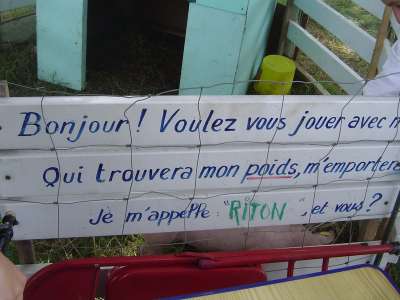 Bonjour! Voulez vous jouer avec
Qui trouvera mon poids, m'emporter
Je m'appelle "RITON", et vous?